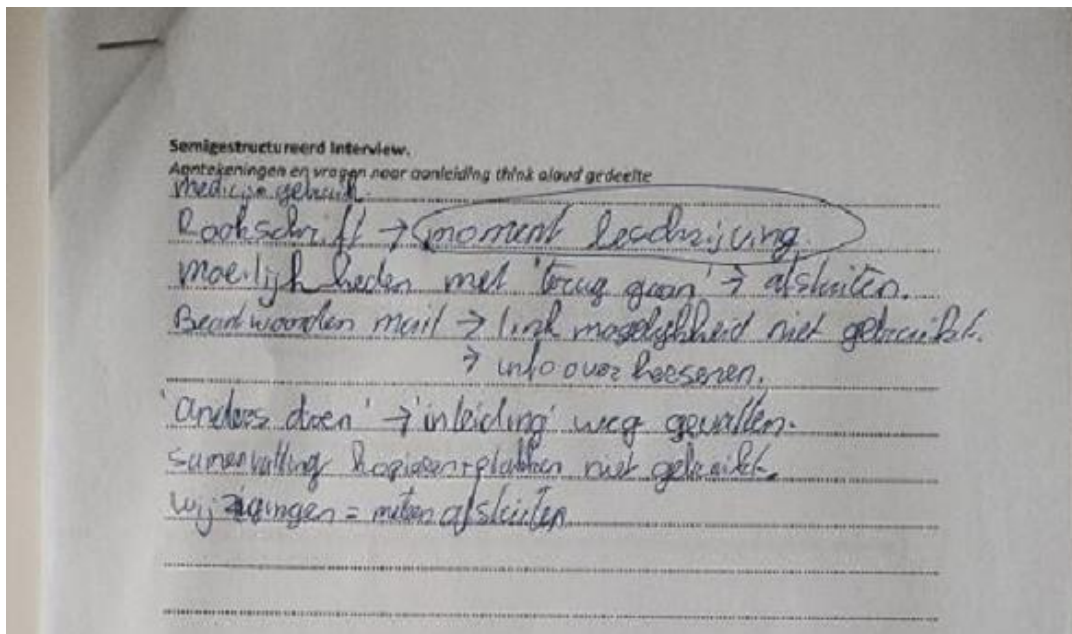 Semigestructureerd Interview.
Aantekeningen en vragen naar aanleiding think aloud gedeelte
medicijn gebruik.
Rookschrift → moment beschrijving.
moeilijkheden met 'terug gaan' → afsluiten.
Beantwoorden mail → link mogelijkheid niet gebruikt.
→ info over hoesenen.
'anders doen' → 'inleiding' weg gevallen.
samenvatting kopieren+plakken niet gebruikt.
wijzigingen = meteen afsluiten